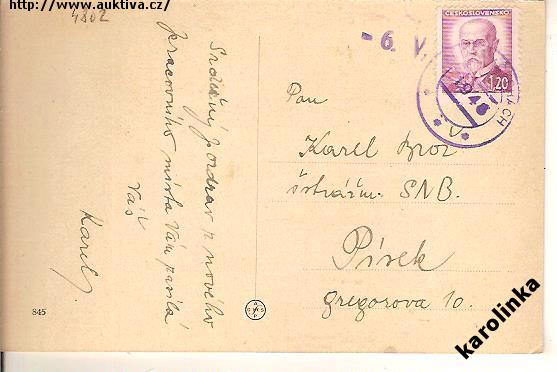 http://www.auktiva.cz/
4802
Srdečný pozdrav z nového
pracovního místa Vám zasílá
Váš
Karel.
- 6. V.
ČESKOSLOVENSKO
1,20
1946
Pan
Karel Broz
strážm. SNB.
Písek
Gregorova 10.
845
karolinka